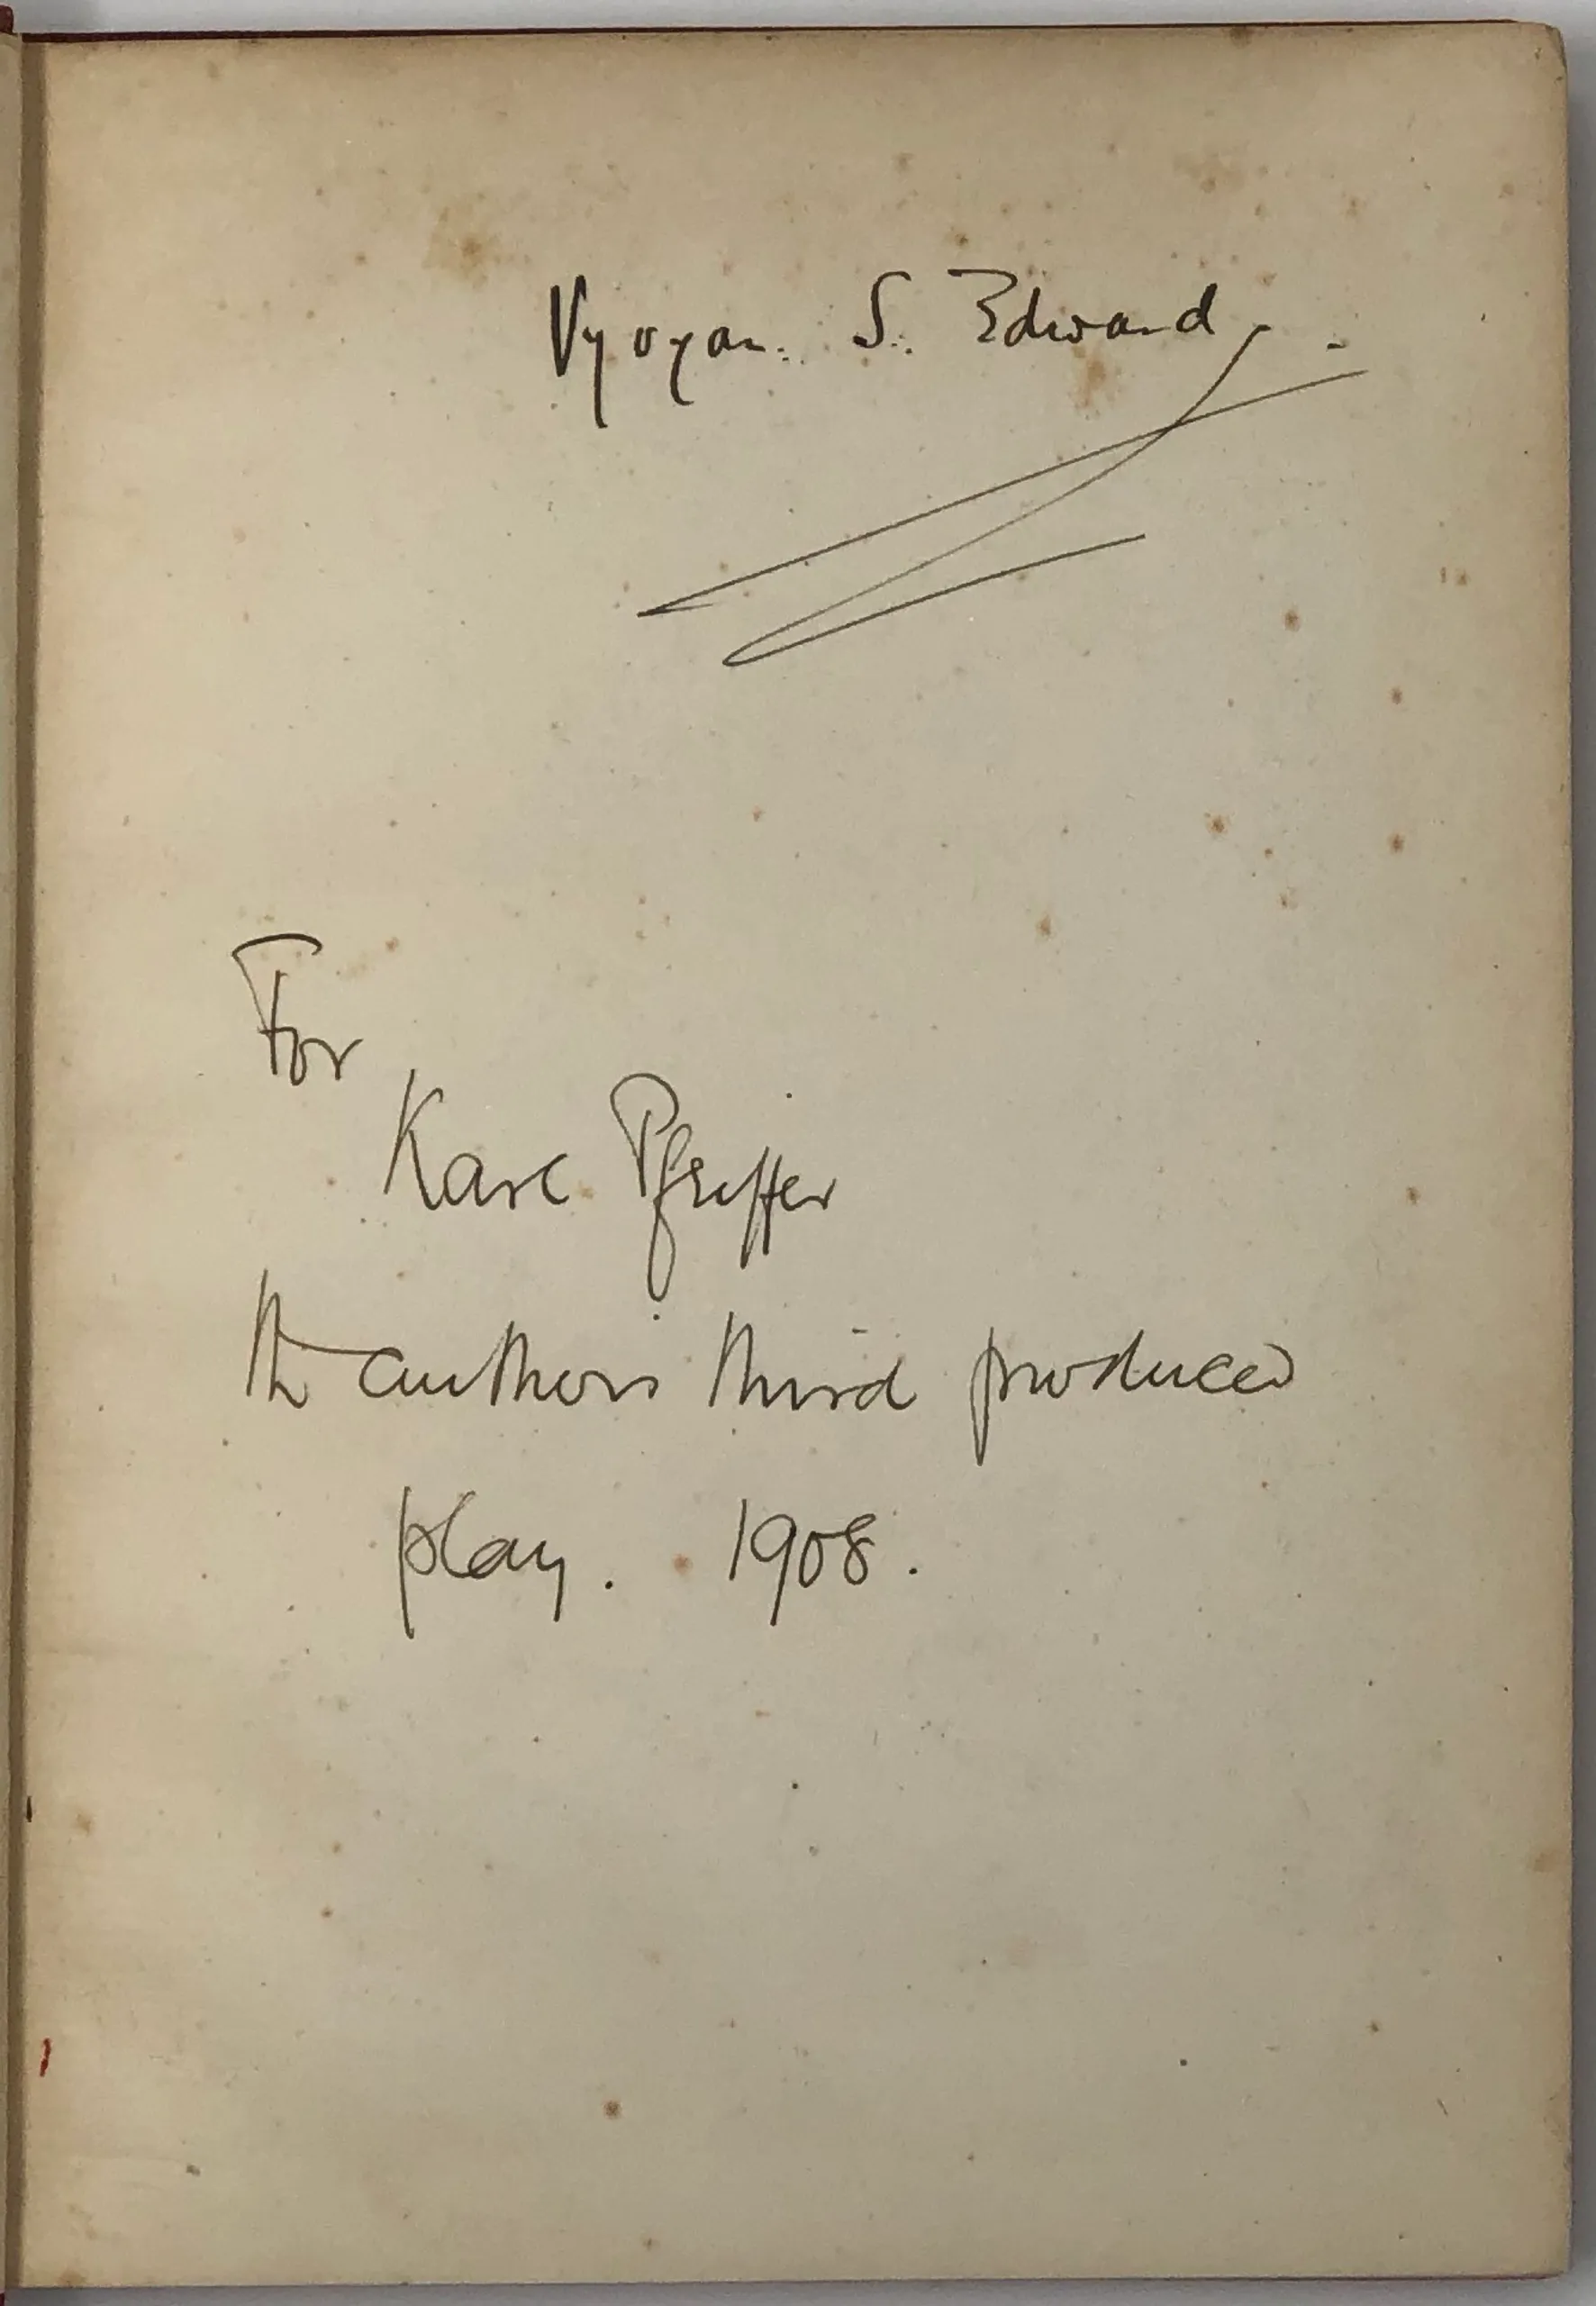 Vyvyan. S. Edwards.
For
Karl Pfeiffer
the authors third produced
play. 1908.